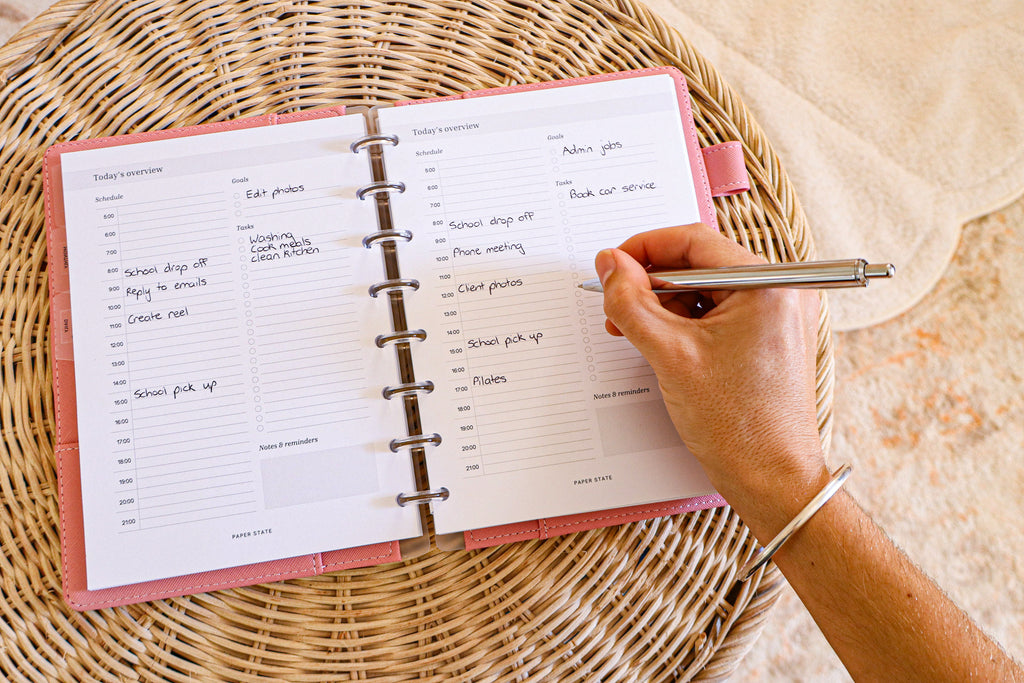 Today's overview
Schedule
6:00
7:00
8:00
School drop off
9:00
Reply to emails
10:00
Create reel
11:00
12:00
13:00
14:00
School pick up
15:00
16:00
17:00
18:00
19:00
20:00
21:00
Goals
Edit photos
Tasks
Washing
Cook meals
clean kitchen
Notes & reminders
PAPER STATE
Today's overview
Schedule
6:00
7:00
8:00
School drop off
9:00
Phone meeting
10:00
11:00
Client photos
12:00
13:00
14:00
School pick up
15:00
16:00
Pilates
17:00
18:00
19:00
20:00
21:00
Goals
Admin jobs
Tasks
Book car service
Notes & reminders
PAPER STATE